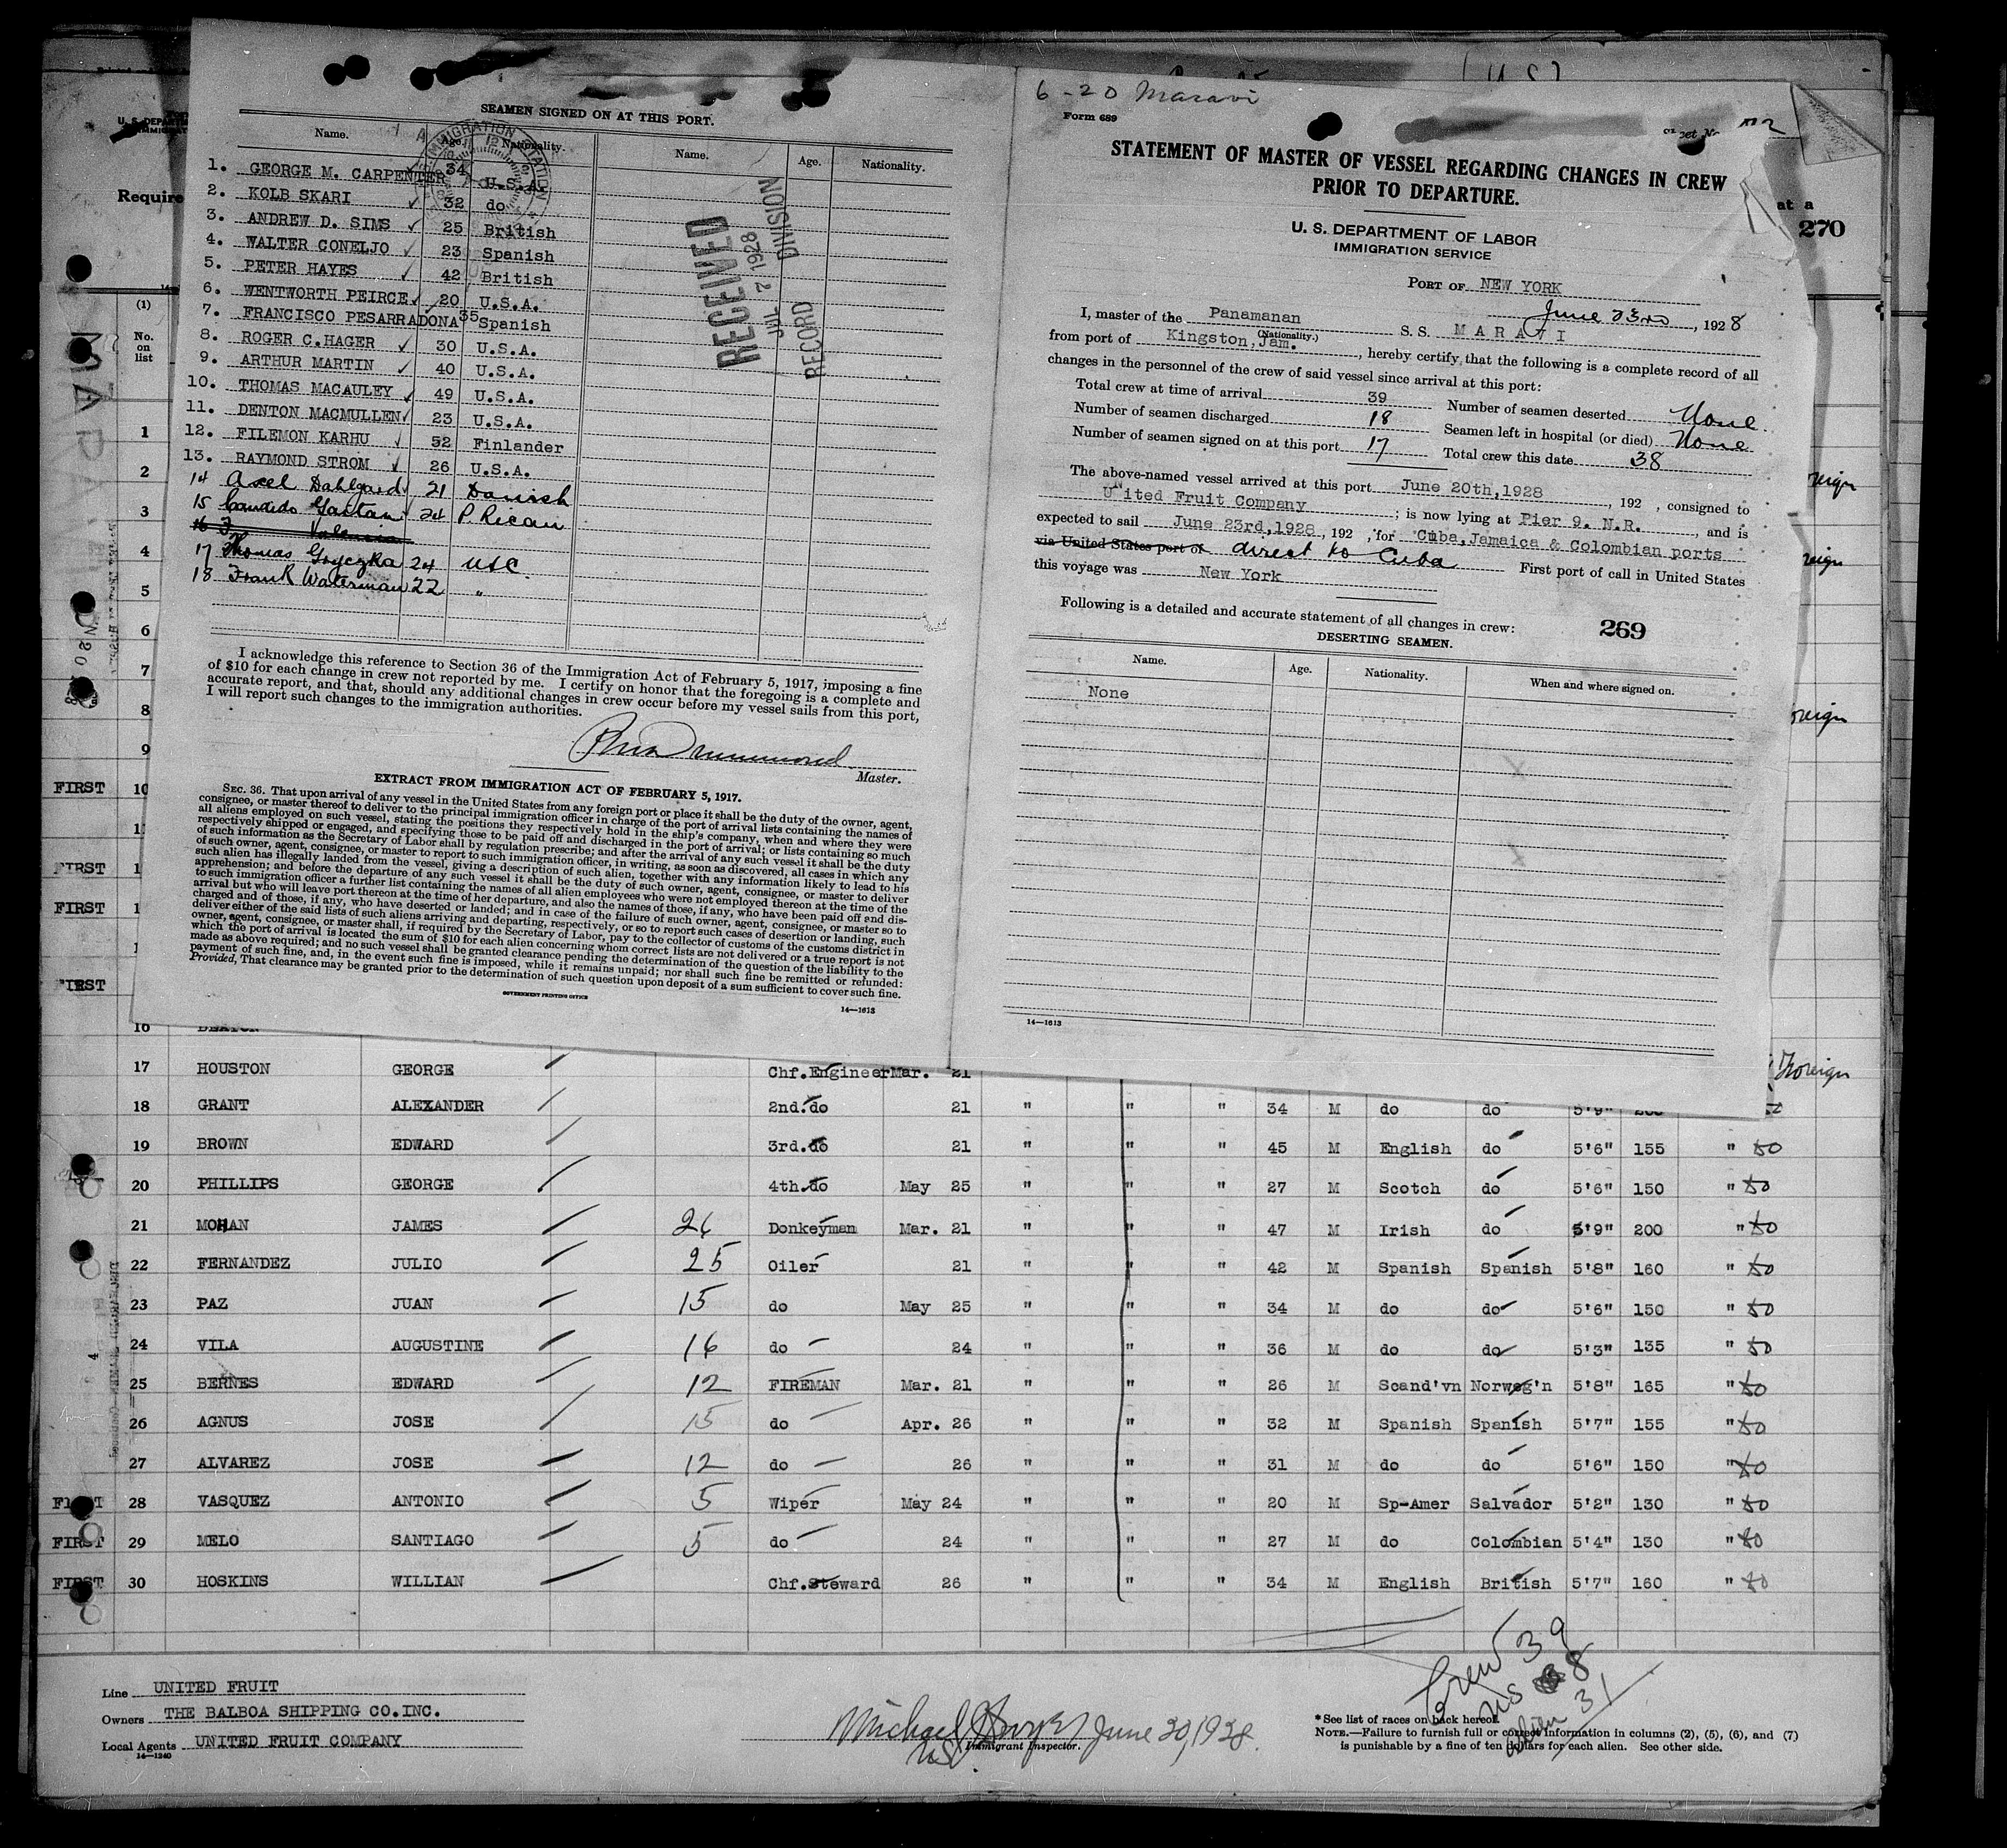 SEAMEN SIGNED ON AT THIS PORT.
Name. Age. Nationality. Name. Age. Nationality.
1. GEORGE M. CARPENTER 34 U.S.A.
2. KOLB SKARI 32 do
3. ANDREW D. SIMS 25 British
4. WALTER CONELJO 23 Spanish
5. PETER HAYES 42 British
6. WENTWORTH PEIRCE 20 U.S.A.
7. FRANCISCO PESARRADONA 35 Spanish
8. ROGER C.HAGER 30 U.S.A.
9. ARTHUR MARTIN 40 U.S.A.
10. THOMAS MACAULEY 49 U.S.A.
11. DENTON MACMULLEN 23 U.S.A.
12. FILEMON KARHU 52 Finlander
13. RAYMOND STROM 26 U.S.A.
14 Axel Dahlgard 21 Danish
15 Candido Gaitan 24 P. Rican
16
17 Thomas Gryczka 24 USC.
18 Frank Waterman 22 "
RECEIVED
JUL 7 1928
RECORD DIVISION
I acknowledge this reference to Section 36 of the Immigration Act of February 5, 1917, imposing a fine
of $10 for each change in crew not reported by me. I certify on honor that the foregoing is a complete and
accurate report, and that, should any additional changes in crew occur before my vessel sails from this port,
I will report such changes to the immigration authorities.
Drummond
Master.
EXTRACT FROM IMMIGRATION ACT OF FEBRUARY 5, 1917.
SEC. 36. That upon arrival of any vessel in the United States from any foreign port or place it shall be the duty of the owner, agent,
consignee, or master thereof to deliver to the principal immigration officer in charge of the port of arrival lists containing the names of
all aliens employed on such vessel, stating the positions they respectively hold in the ship's company, when and where they were
respectively shipped or engaged, and specifying those to be paid off and discharged in the port of arrival; or lists containing so much
of such information as the Secretary of Labor shall by regulation prescribe; and after the arrival of any such vessel it shall be the duty
of such owner, agent, consignee, or master to report to such immigration officer, in writing, as soon as discovered, all cases in which any
such alien has illegally landed from the vessel, giving a description of such alien, together with any information likely to lead to his
apprehension; and before the departure of any such vessel it shall be the duty of such owner, agent, consignee, or master to deliver
to such immigration officer a further list containing the names of all alien employees who were not employed thereon at the time of the
arrival but who will leave port thereon at the time of her departure, and also the names of those, if any, who have been paid off and dis-
charged and of those, if any, who have deserted or landed; and in case of the failure of such owner, agent, consignee, or master so to
deliver either of the said lists of such aliens arriving and departing, respectively, or so to report such cases of desertion or landing, such
owner, agent, consignee, or master shall, if required by the Secretary of Labor, pay to the collector of customs of the customs district in
which the port of arrival is located the sum of $10 for each alien concerning whom correct lists are not delivered or a true report is not
made as above required; and no such vessel shall be granted clearance pending the determination of the question of the liability to the
payment of such fine, and, in the event such fine is imposed, while it remains unpaid; nor shall such fine be remitted or refunded:
Provided, That clearance may be granted prior to the determination of such question upon deposit of a sum sufficient to cover such fine.
GOVERNMENT PRINTING OFFICE
14—1613
6-20 Maravi
Form 689
STATEMENT OF MASTER OF VESSEL REGARDING CHANGES IN CREW
PRIOR TO DEPARTURE.
U. S. DEPARTMENT OF LABOR
IMMIGRATION SERVICE
PORT OF NEW YORK
June 23rd, 1928
I, master of the Panamanan S. S. MARAVI
(Nationality.)
from port of Kingston,Jam., hereby certify that the following is a complete record of all
changes in the personnel of the crew of said vessel since arrival at this port:
Total crew at time of arrival 39 Number of seamen deserted None
Number of seamen discharged 18 Seamen left in hospital (or died) None
Number of seamen signed on at this port 17 Total crew this date 38
The above-named vessel arrived at this port June 20th,1928, 192 , consigned to
United Fruit Company; is now lying at Pier 9. N.R., and is
expected to sail June 23rd,1928, 192 , for Cuba,Jamaica & Colombian ports
via United States port of direct to Cuba First port of call in United States
this voyage was New York
Following is a detailed and accurate statement of all changes in crew:
269
DESERTING SEAMEN.
Name. Age. Nationality. When and where signed on.
None
14—1613
Require
at a
270
(1)
No. on list
MARAVI
1
2
3
4
5
6
7
8
9
FIRST 10
FIRST
FIRST
FIRST
16
17 HOUSTON GEORGE Chf.Engineer Mar. 21 Foreign
18 GRANT ALEXANDER 2nd.do 21 " " " 34 M do do 5'9" 200
19 BROWN EDWARD 3rd.do 21 " " " 45 M English do 5'6" 155 " do
20 PHILLIPS GEORGE 4th.do May 25 " " " 27 M Scotch do 5'6" 150 " do
21 MOHAN JAMES 26 Donkeyman Mar. 21 " " " 47 M Irish do 5'9" 200 " do
22 FERNANDEZ JULIO 25 Oiler 21 " " " 42 M Spanish Spanish 5'8" 160 " do
23 PAZ JUAN 15 do May 25 " " " 34 M do do 5'6" 150 " do
24 VILA AUGUSTINE 16 do 24 " " " 36 M do do 5'3" 135 " do
25 BERNES EDWARD 12 FIREMAN Mar. 21 " " " 26 M Scand'vn Norweg'n 5'8" 165 " do
26 AGNUS JOSE 15 do Apr. 26 " " " 32 M Spanish Spanish 5'7" 155 " do
27 ALVAREZ JOSE 12 do 26 " " " 31 M do do 5'6" 150 " do
FIRST 28 VASQUEZ ANTONIO 5 Wiper May 24 " " " 20 M Sp-Amer Salvador 5'2" 130 " do
FIRST 29 MELO SANTIAGO 5 do 24 " " " 27 M do Colombian 5'4" 130 " do
FIRST 30 HOSKINS WILLIAN Chf.Steward 26 " " " 34 M English British 5'7" 160 " do
Crew 39
US 8
Alien 31
Line UNITED FRUIT
Owners THE BALBOA SHIPPING CO.INC.
Local Agents UNITED FRUIT COMPANY
14—1240
Michael June 20, 1928.
Immigrant Inspector.
*See list of races on back hereof.
NOTE.—Failure to furnish full or correct information in columns (2), (5), (6), and (7)
is punishable by a fine of ten dollars for each alien. See other side.